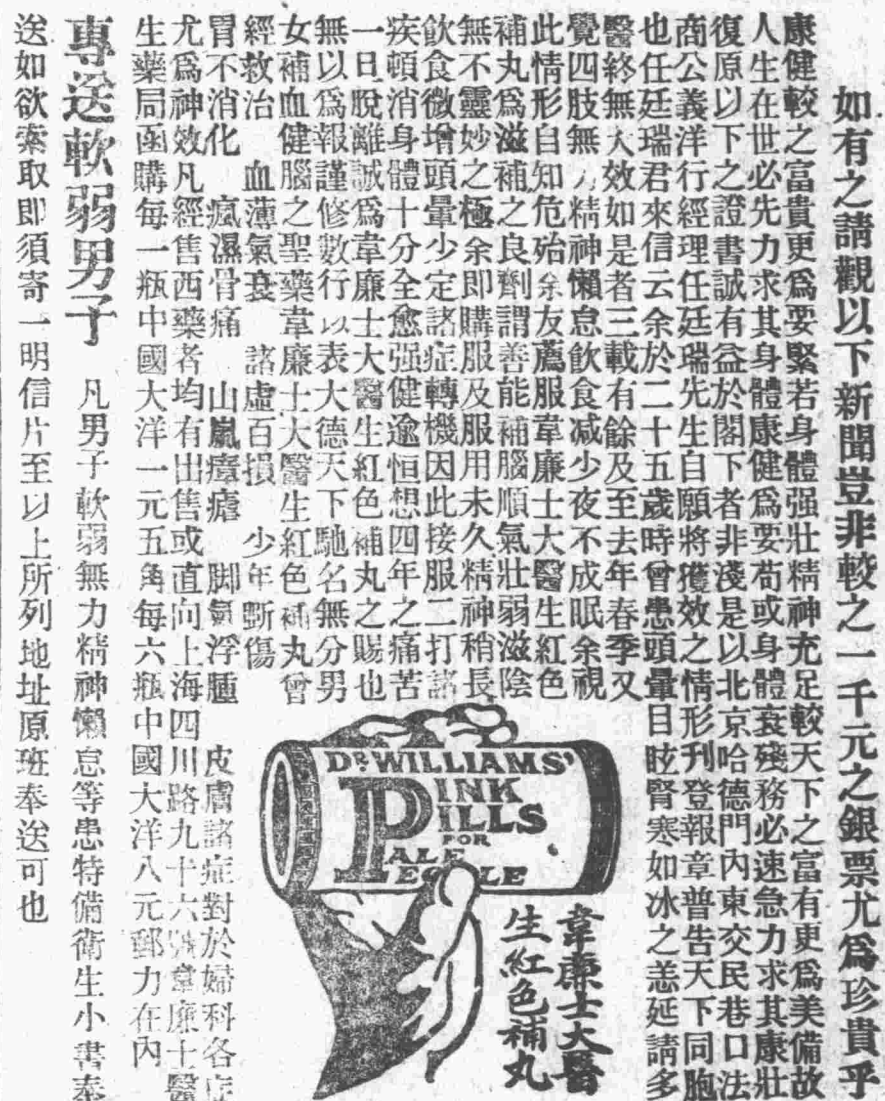 如有之請觀以下新聞豈非較之一千元之銀票尤爲珍貴乎
康健較之富貴更爲要緊若身體强壯精神充足較天下之富有更爲美備故
人生在世必先力求其身體康健爲要苟或身體衰殘務必速急力求其康壯
復原以下之證書誠有益於閣下者非淺是以北京哈德門內東交民巷口法
商公義洋行經理任廷瑞先生自願將獲效之情形刊登報章普告天下同胞
也任廷瑞君來信云余於二十五歲時曾患頭暈目眩腎寒如冰之恙延請多
醫終無大效如是者三載有餘及至去年春季又
覺四肢無力精神懶怠飲食减少夜不成眠余視
此情形自知危殆余友薦服韋廉士大醫生紅色
補丸爲滋補之良劑謂善能補腦順氣壯弱滋陰
無不靈妙之極余即購服及服用未久精神稍長
飲食微增頭暈少定諸症轉機因此接服二打諸
疾頓消身體十分全愈强健逾恒想四年之痛苦
一日脫離誠爲韋廉士大醫生紅色補丸之賜也
無以爲報謹修數行以表大德天下馳名無分男
女補血健腦之聖藥韋廉士大醫生紅色補丸曾
經救治 血薄氣衰 諸虛百損 少年斲傷
胃不消化 瘋濕骨痛 山嵐瘴瘧 脚氣浮腫 皮膚諸症對於婦科各症
尤爲神效凡經售西藥者均有出售或直向上海四川路九十六號韋廉士醫
生藥局函購每一瓶中國大洋一元五角每六瓶中國大洋八元郵力在內
專送軟弱男子 凡男子軟弱無力精神懶怠等患特備衛生小書奉
送如欲索取即須寄一明信片至以上所列地址原班奉送可也
DR WILLIAMS'
PINK
PILLS
FOR
PALE
PEOPLE
韋廉士大醫
生紅色補丸